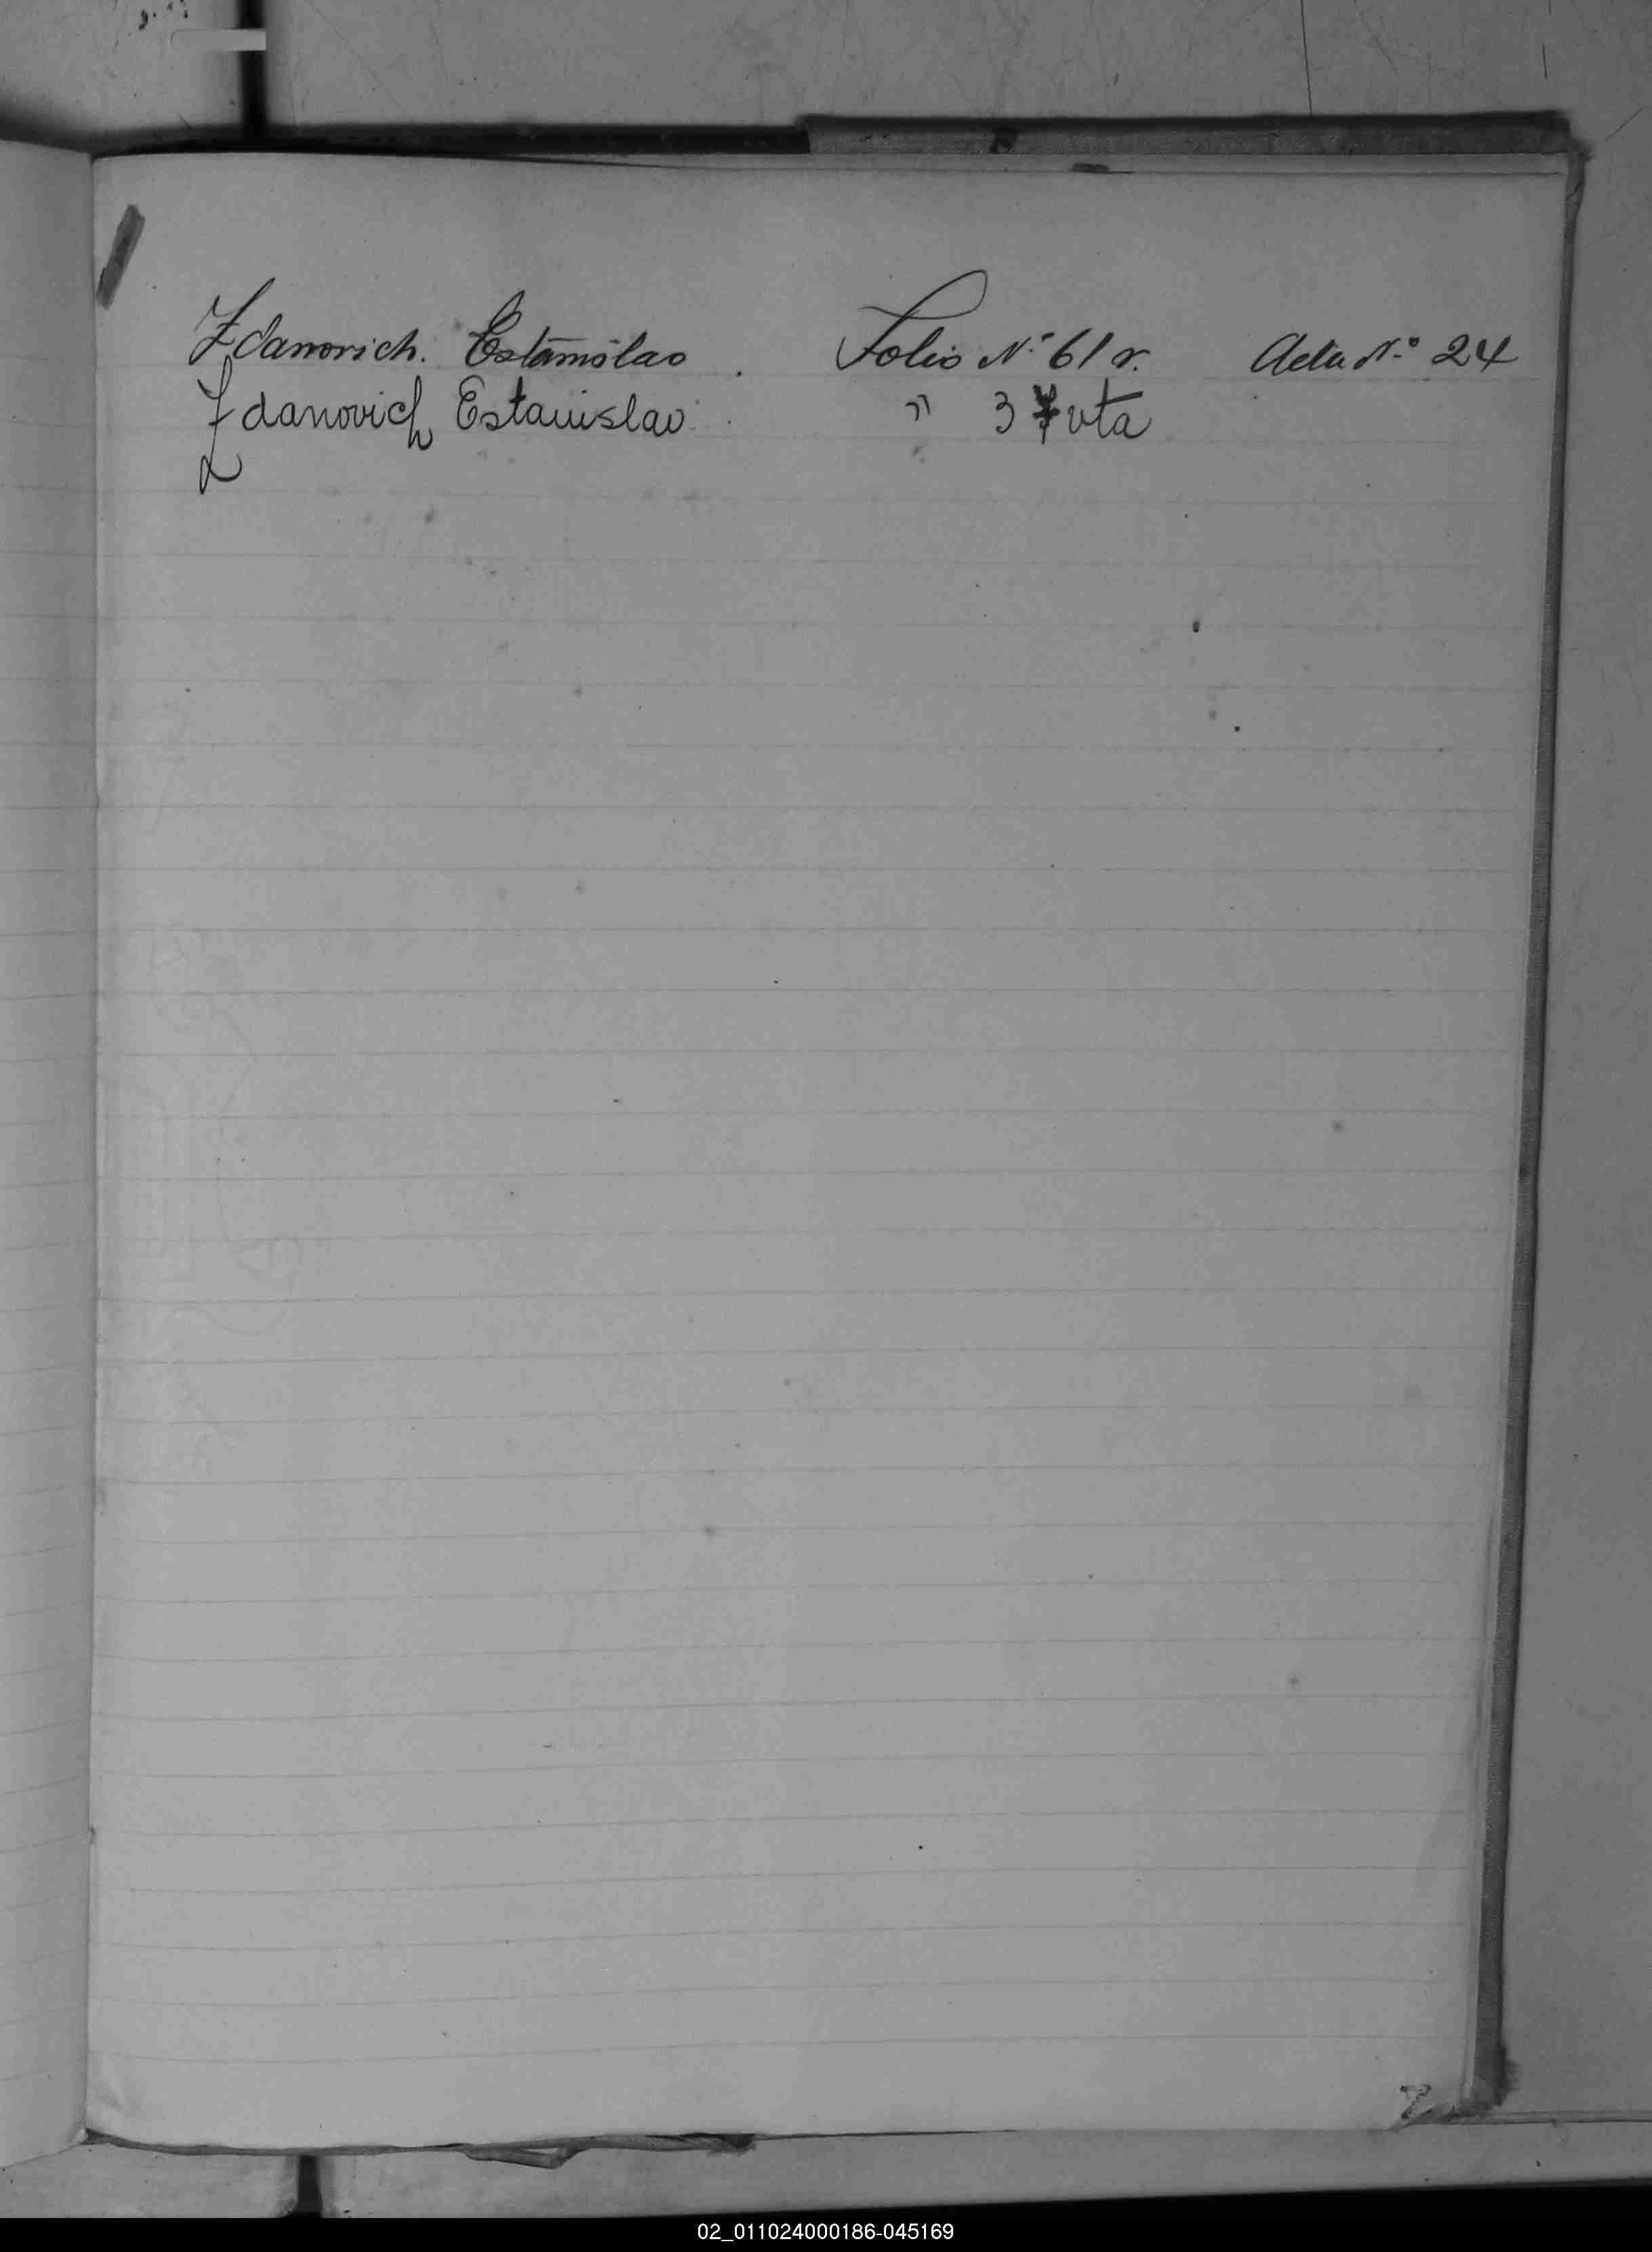 Zdanovich. Estanislao. Folio Nº 61 v. Acta Nº 24
Zdanovich Estanislao. " 3 vta
Z
02_011024000186-045169